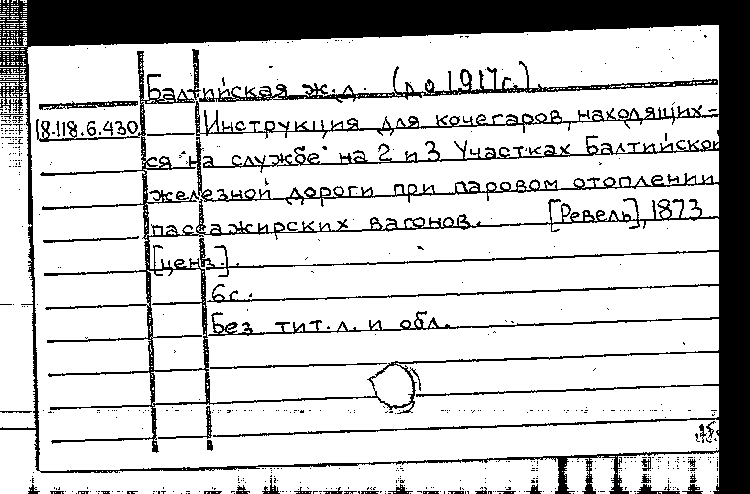 Балтийская ж.д. (до 1917г.).
18.118.6.430 Инструкция для кочегаров, находящих-
ся на службе на 2 и 3 Участках Балтийской
железной дороги при паровом отоплении
пассажирских вагонов. [Ревель], 1873
[ценз.].
6с.
Без тит.л. и обл.